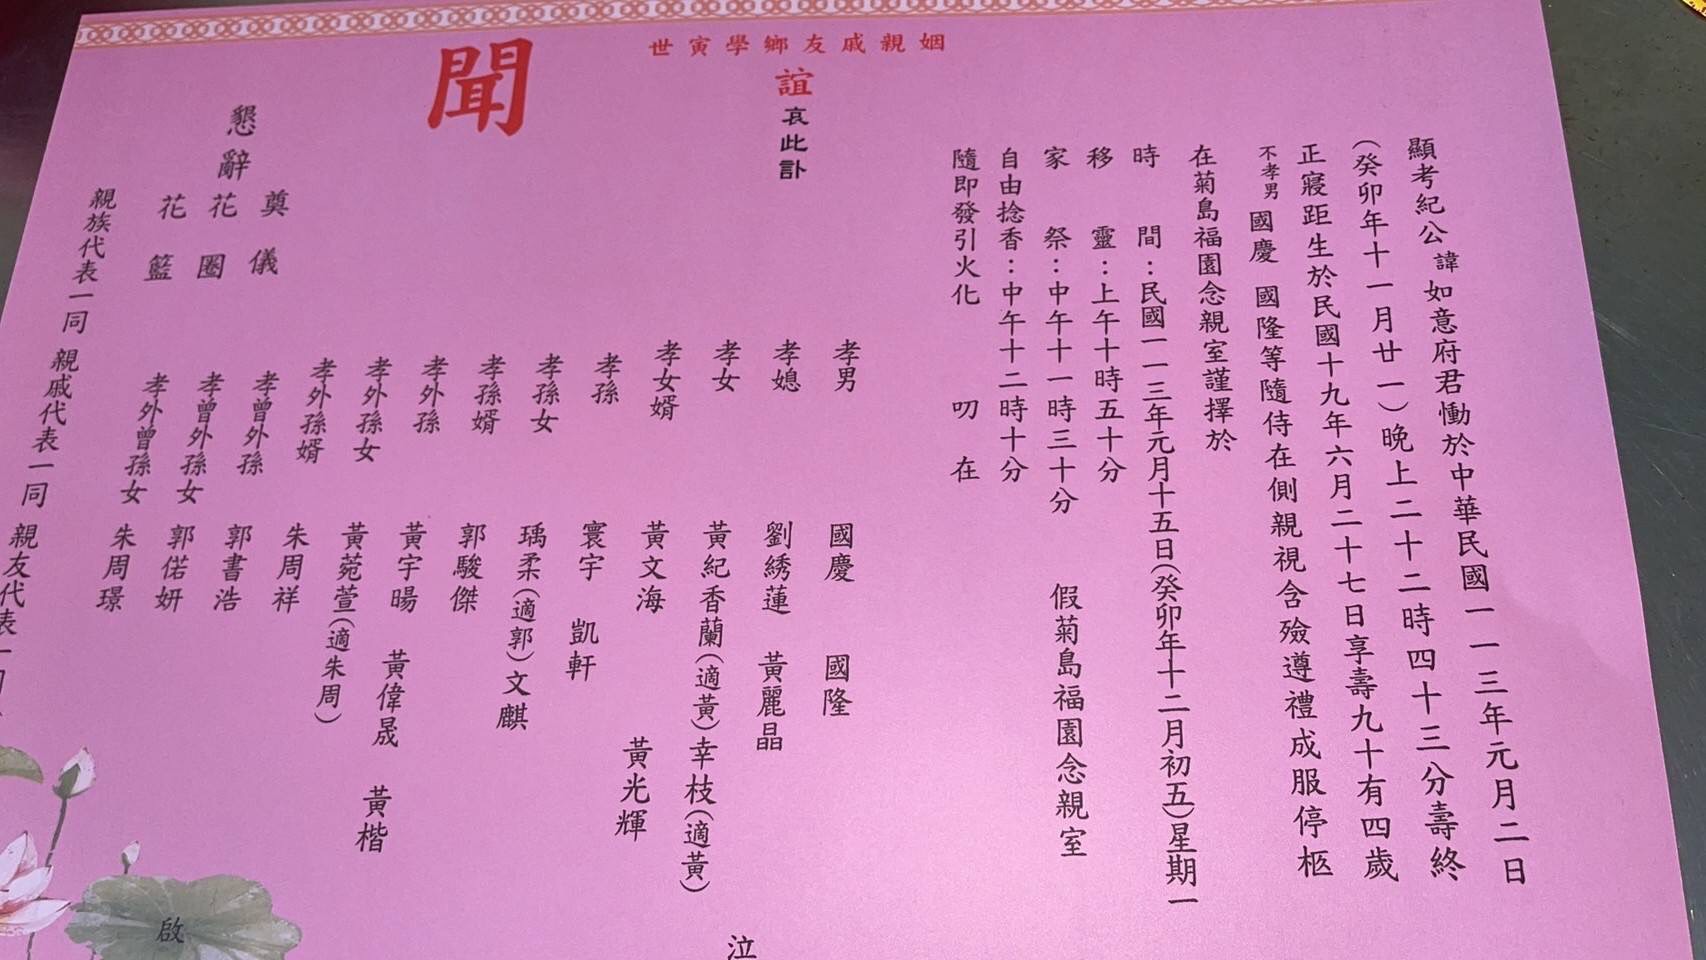 顯考紀公諱如意府君慟於中華民國一一三年元月二日
(癸卯年十一月廿一)晚上二十二時四十三分壽終
正寢距生於民國十九年六月二十七日享壽九十有四歲
不孝男國慶 國隆等隨侍在側親視含殮遵禮成服停柩
在菊島福園念親室謹擇於
時間:民國一一三年元月十五日(癸卯年十二月初五)星期一
移靈:上午十時五十分
家祭:中午十一時三十分 假菊島福園念親室
自由捻香:中午十二時十分
隨即發引火化 叨在
世寅學鄉友戚親姻
誼哀此訃
聞
孝男 國慶 國隆
孝媳 劉綉蓮 黃麗晶
孝女 黃紀香蘭(適黃)幸枝(適黃)
孝女婿 黃文海 黃光輝
孝孫 寰宇 凱軒
孝孫女 瑀柔(適郭)文麒
孝孫婿 郭駿傑
孝外孫 黃宇暘 黃偉晟 黃楷
孝外孫女 黃菀萱(適朱周)
孝外孫婿 朱周祥
孝曾外孫 郭書浩
孝曾外孫女 郭偌妍
孝外曾孫女 朱周璟
泣
啟
懇辭
奠儀
花圈
花籃
親族代表一同
親戚代表一同
親友代表一同